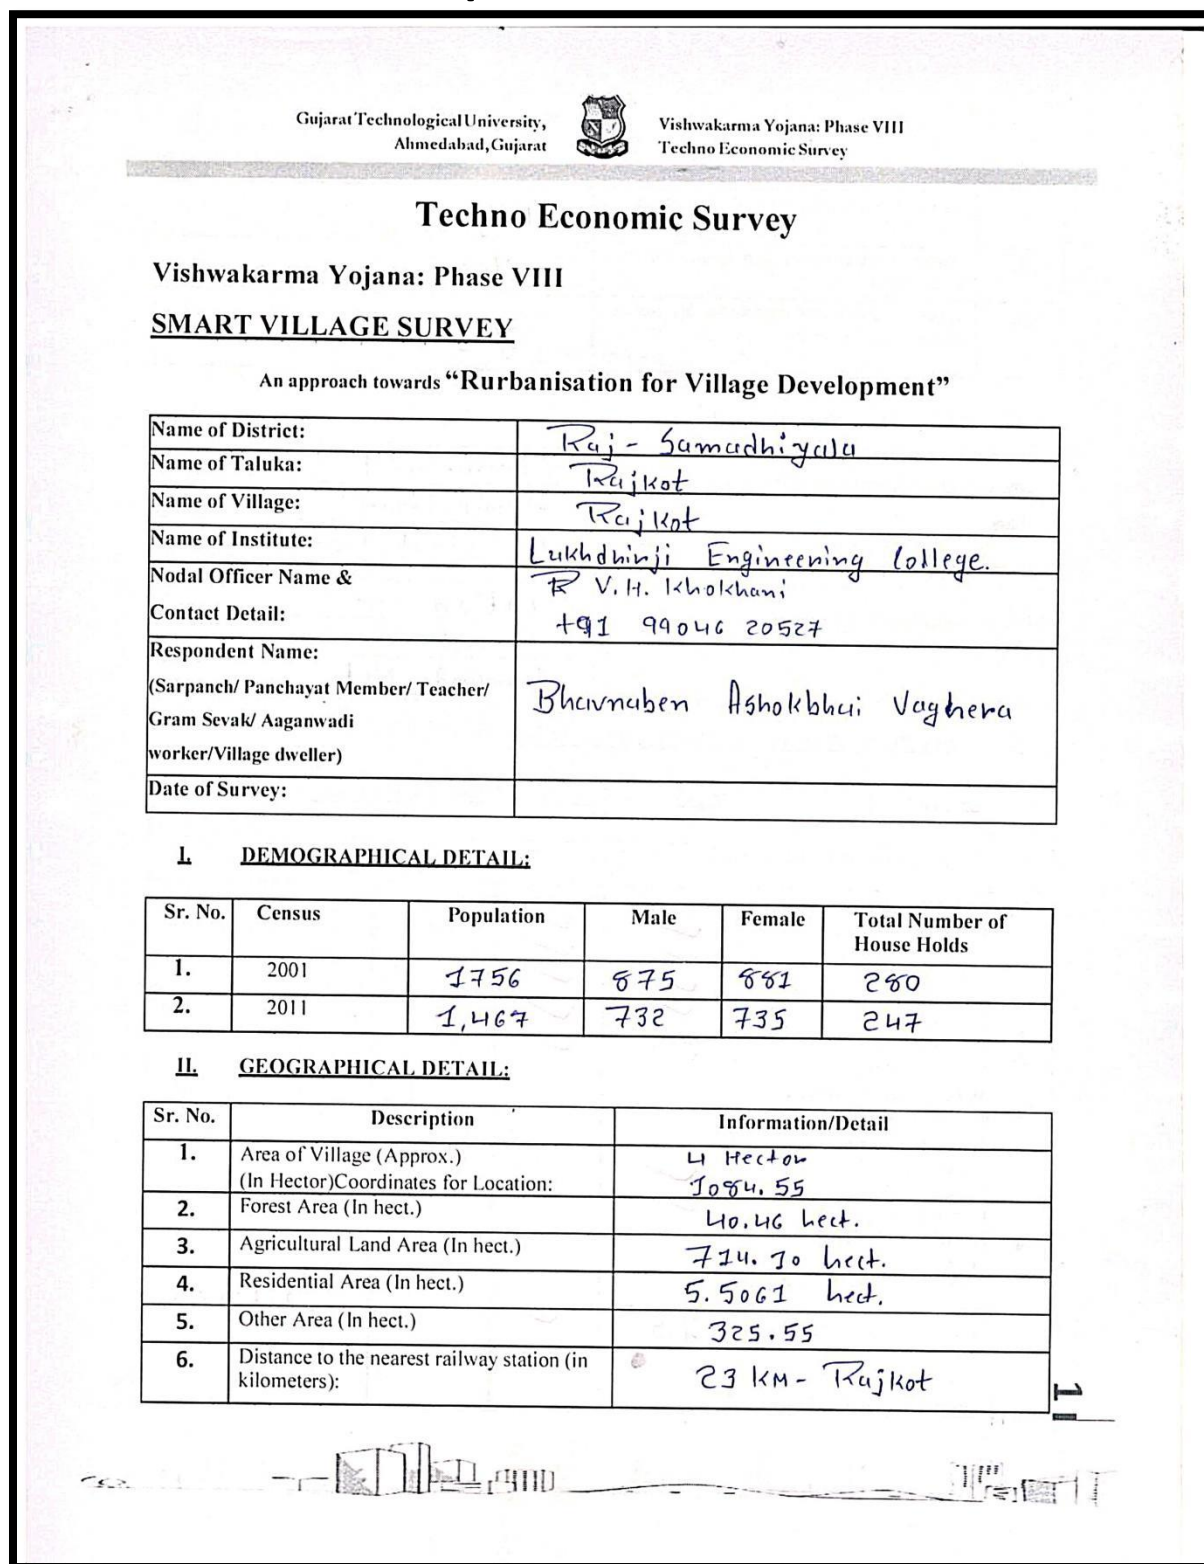 Gujarat Technological University,
Ahmedabad, Gujarat
Vishwakarma Yojana: Phase VIII
Techno Economic Survey
Techno Economic Survey
Vishwakarma Yojana: Phase VIII
SMART VILLAGE SURVEY
An approach towards “Rurbanisation for Village Development”
Name of District: Raj - Samadhiyala
Name of Taluka: Rajkot
Name of Village: Rajkot
Name of Institute: Lukhdhirji Engineering College.
Nodal Officer Name & V.H. Khokhani
Contact Detail: +91 99046 20527
Respondent Name:
(Sarpanch/ Panchayat Member/ Teacher/ Bhavnaben Ashokbhai Vaghera
Gram Sevak/ Aaganwadi
worker/Village dweller)
Date of Survey:
I. DEMOGRAPHICAL DETAIL:
Sr. No. Census Population Male Female Total Number of
House Holds
1. 2001 1756 875 881 280
2. 2011 1,467 732 735 247
II. GEOGRAPHICAL DETAIL:
Sr. No. Description Information/Detail
1. Area of Village (Approx.) 4 Hector
(In Hector)Coordinates for Location: 1084.55
2. Forest Area (In hect.) 40.46 hect.
3. Agricultural Land Area (In hect.) 714.10 hect.
4. Residential Area (In hect.) 5.5061 hect.
5. Other Area (In hect.) 325.55
6. Distance to the nearest railway station (in 23 KM - Rajkot
kilometers):
1